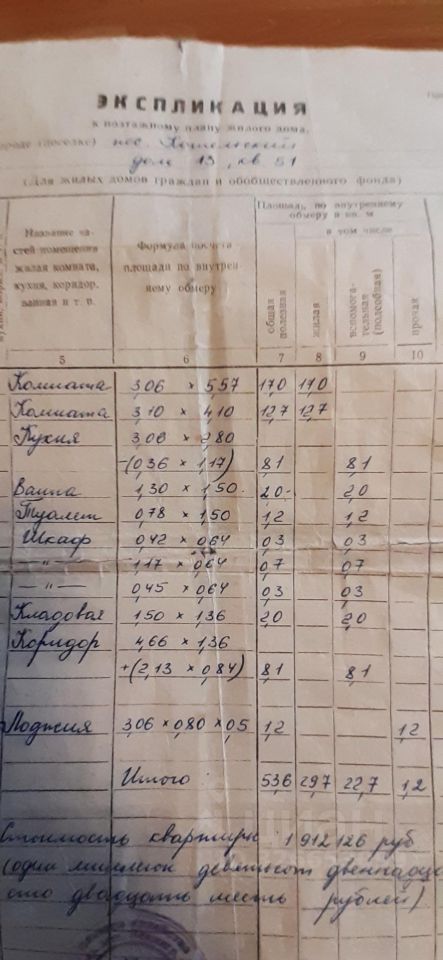 ЭКСПЛИКАЦИЯ
к поэтажному плану жилого дома,
(поселке) пос.
дом 13, кв 51
(Для жилых домов граждан и обобществленного фонда)
Название частей помещения жилая комната, кухня, коридор, ванная и т. п.
Формула расчета площади по внутреннему обмеру
Площадь, по внутреннему обмеру в кв. м
в том числе
общая полезная
жилая
вспомогательная (подсобная)
прочая
5 6 7 8 9 10
Комната 3,06 × 5,57 17,0 17,0
Комната 3,10 × 4,10 12,7 12,7
Кухня 3,06 × 2,80
-(0,36 × 1,17) 8,1 8,1
Ванна 1,30 × 1,50 2,0 2,0
Туалет 0,78 × 1,50 1,2 1,2
Шкаф 0,42 × 0,64 0,3 0,3
—"— 1,17 × 0,64 0,7 0,7
—"— 0,45 × 0,64 0,3 0,3
Кладовая 1,50 × 1,36 2,0 2,0
Коридор 4,66 × 1,36
+(2,13 × 0,84) 8,1 8,1
Лоджия 3,06 × 0,80 × 0,5 1,2 1,2
Итого 53,6 29,7 22,7 1,2
Стоимость квартиры 1 912 126 руб
(один миллион девятьсот двенадца
сто двадцать шесть рублей)